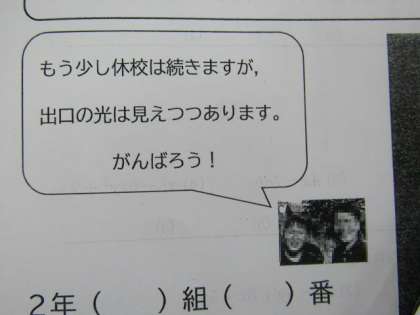 もう少し休校は続きますが，
出口の光は見えつつあります。
がんばろう！
2年（　　）組（　　）番